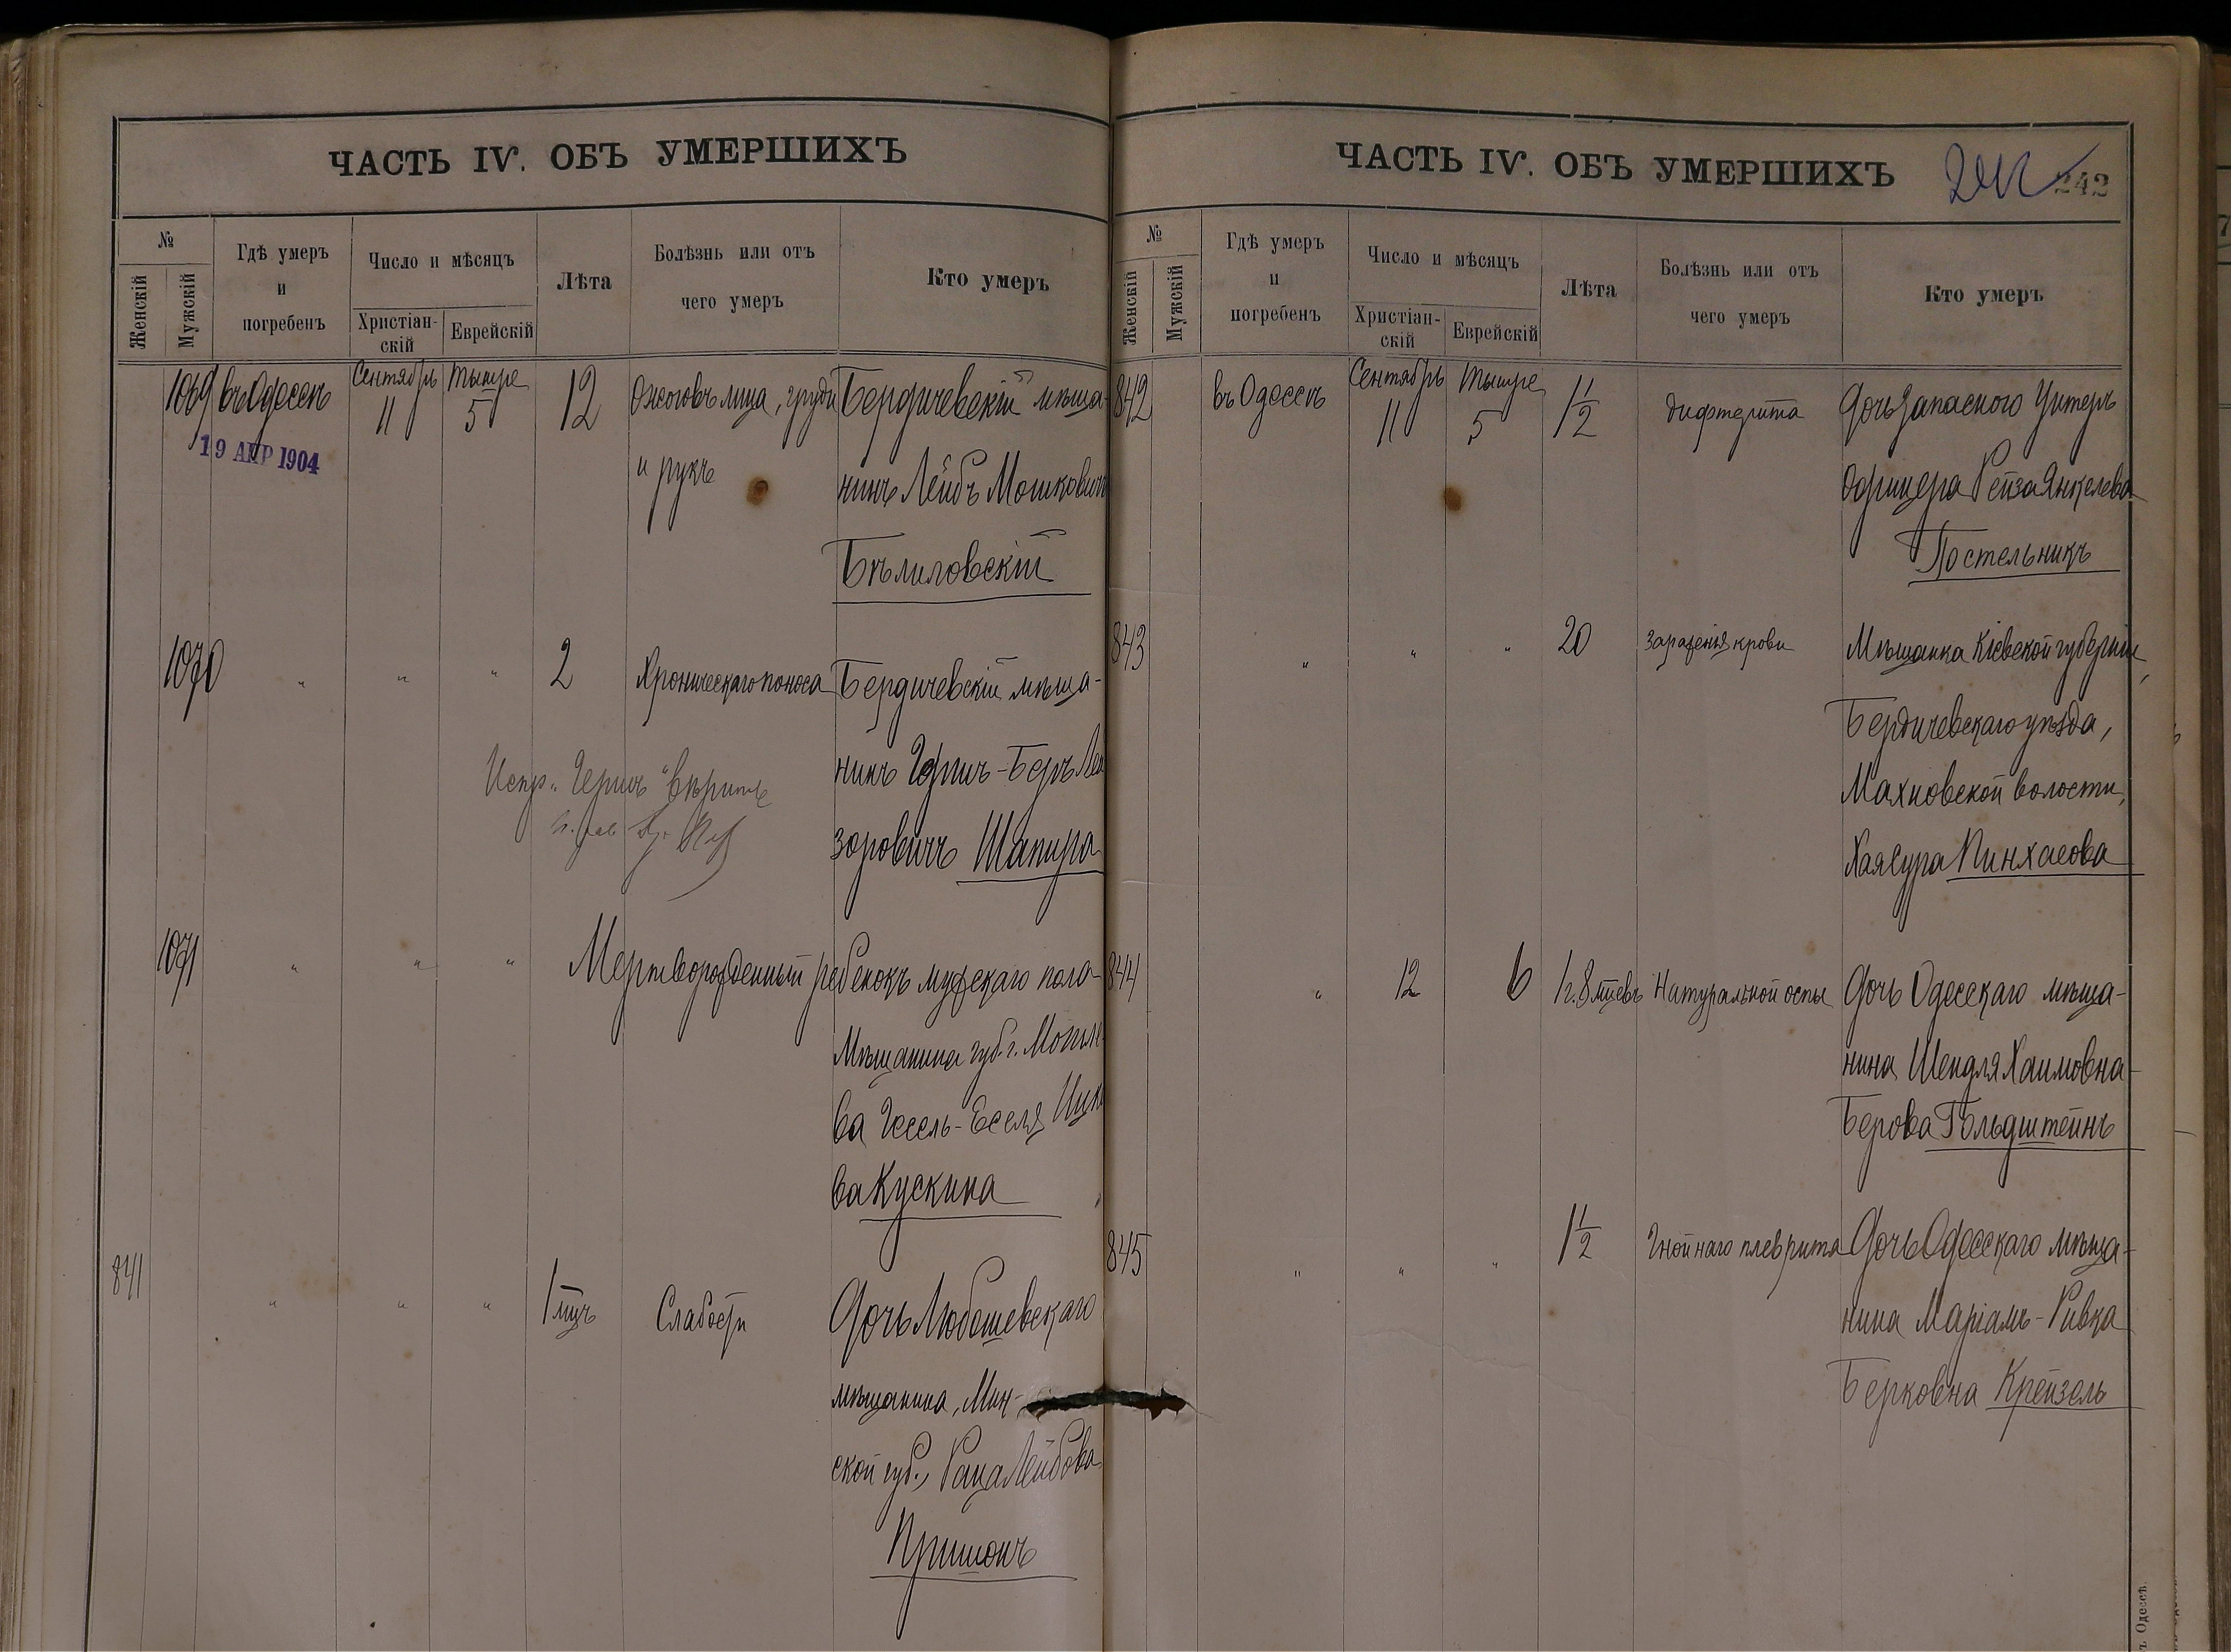 ЧАСТЬ IV. ОБЪ УМЕРШИХЪ
№
Женскій
Мужскій
Гдѣ умеръ
и
погребенъ
Число и мѣсяцъ
Христіан-
скій
Еврейскій
Лѣта
Болѣзнь или отъ
чего умеръ
Кто умеръ
1069 въ Одессѣ Сентябрь 11 Тышре 5 12 Ожоговъ лица, груди Бердичевскій мѣща-
19 АПР 1904
и рукъ нинъ Лейбъ Мошковичъ
Бѣлиловскій
1070 " " " 2 Хроническаго поноса Бердичевскій мѣща-
нинъ Герш-Беръ Лей
Испр. "Герш" вѣрить
зоровичъ Шапира
1071 " " " Мертворожденный ребенокъ мужскаго пола
Мѣщанина губ. г. Могиле
ва Іосель-Еселя Ицко
ва Кускина
841 " " " 1 мцъ Слабости Дочь Любешевскаго
мѣщанина, Мин-
ской губ., Раца Лейбова
Пришонъ
ЧАСТЬ IV. ОБЪ УМЕРШИХЪ
242
242
№
Женскій
Мужскій
Гдѣ умеръ
и
погребенъ
Число и мѣсяцъ
Христіан-
скій
Еврейскій
Лѣта
Болѣзнь или отъ
чего умеръ
Кто умеръ
842 въ Одессѣ Сентябрь 11 Тышре 5 1 1/2 дифтерита Дочь запасного Унтеръ
Офицера Рейза Янкелева
Постельникъ
843 " " " 20 зараженія крови Мѣщанка Кіевской губерніи,
Бердичевскаго уѣзда,
Махновской волости,
Хая Сура Пинхасова
844 " 12 6 1 г. 8 мцевъ Натуральной оспы Дочь Одесскаго мѣща-
нина Шендля Хаимовна-
Берова Гольдштейнъ
845 " " " 1 1/2 Гнойнаго плеврита Дочь Одесскаго мѣща-
нина Маріамъ-Ривка
Берковна Крейзель